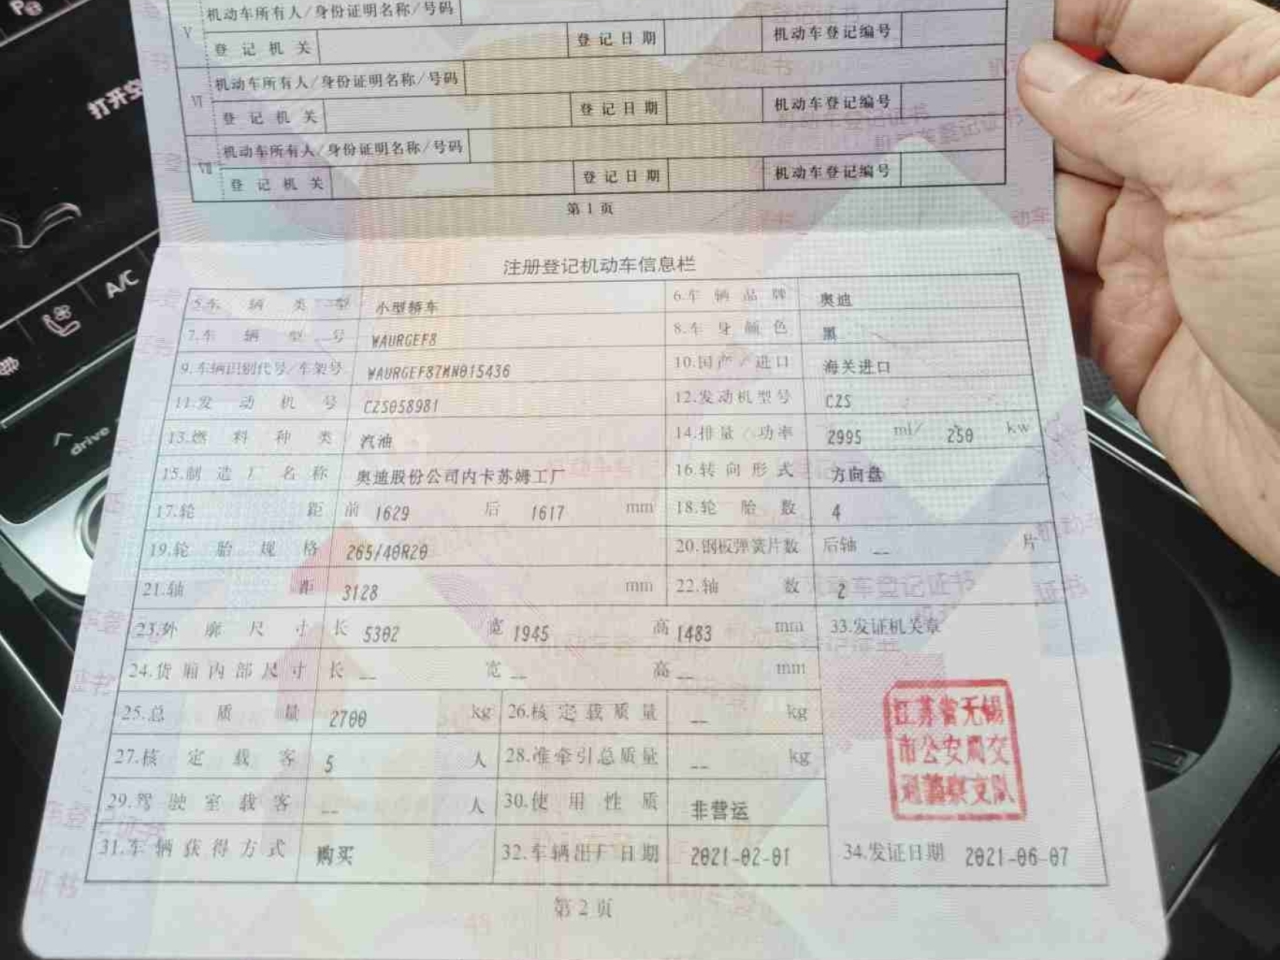 P
打开空
A/C
drive
V 机动车所有人/身份证明名称/号码
登记机关 登记日期 机动车登记编号
VI 机动车所有人/身份证明名称/号码
登记机关 登记日期 机动车登记编号
VII 机动车所有人/身份证明名称/号码
登记机关 登记日期 机动车登记编号
第1页
注册登记机动车信息栏
5.车辆类型 小型轿车 6.车辆品牌 奥迪
7.车辆型号 WAURGEF8 8.车身颜色 黑
9.车辆识别代号/车架号 WAURGEF87MN015436 10.国产/进口 海关进口
11.发动机号 CZS058981 12.发动机型号 CZS
13.燃料种类 汽油 14.排量/功率 2995 ml/ 250 kw
15.制造厂名称 奥迪股份公司内卡苏姆工厂 16.转向形式 方向盘
17.轮距 前 1629 后 1617 mm 18.轮胎数 4
19.轮胎规格 265/40R20 20.钢板弹簧片数 后轴 -- 片
21.轴距 3128 mm 22.轴数 2
23.外廓尺寸 长 5302 宽 1945 高 1483 mm 33.发证机关章
24.货厢内部尺寸 长 -- 宽 -- 高 -- mm
25.总质量 2700 kg 26.核定载质量 -- kg
27.核定载客 5 人 28.准牵引总质量 -- kg
29.驾驶室载客 -- 人 30.使用性质 非营运
江苏省无锡
市公安局交
通警察支队
31.车辆获得方式 购买 32.车辆出厂日期 2021-02-01 34.发证日期 2021-06-07
第2页